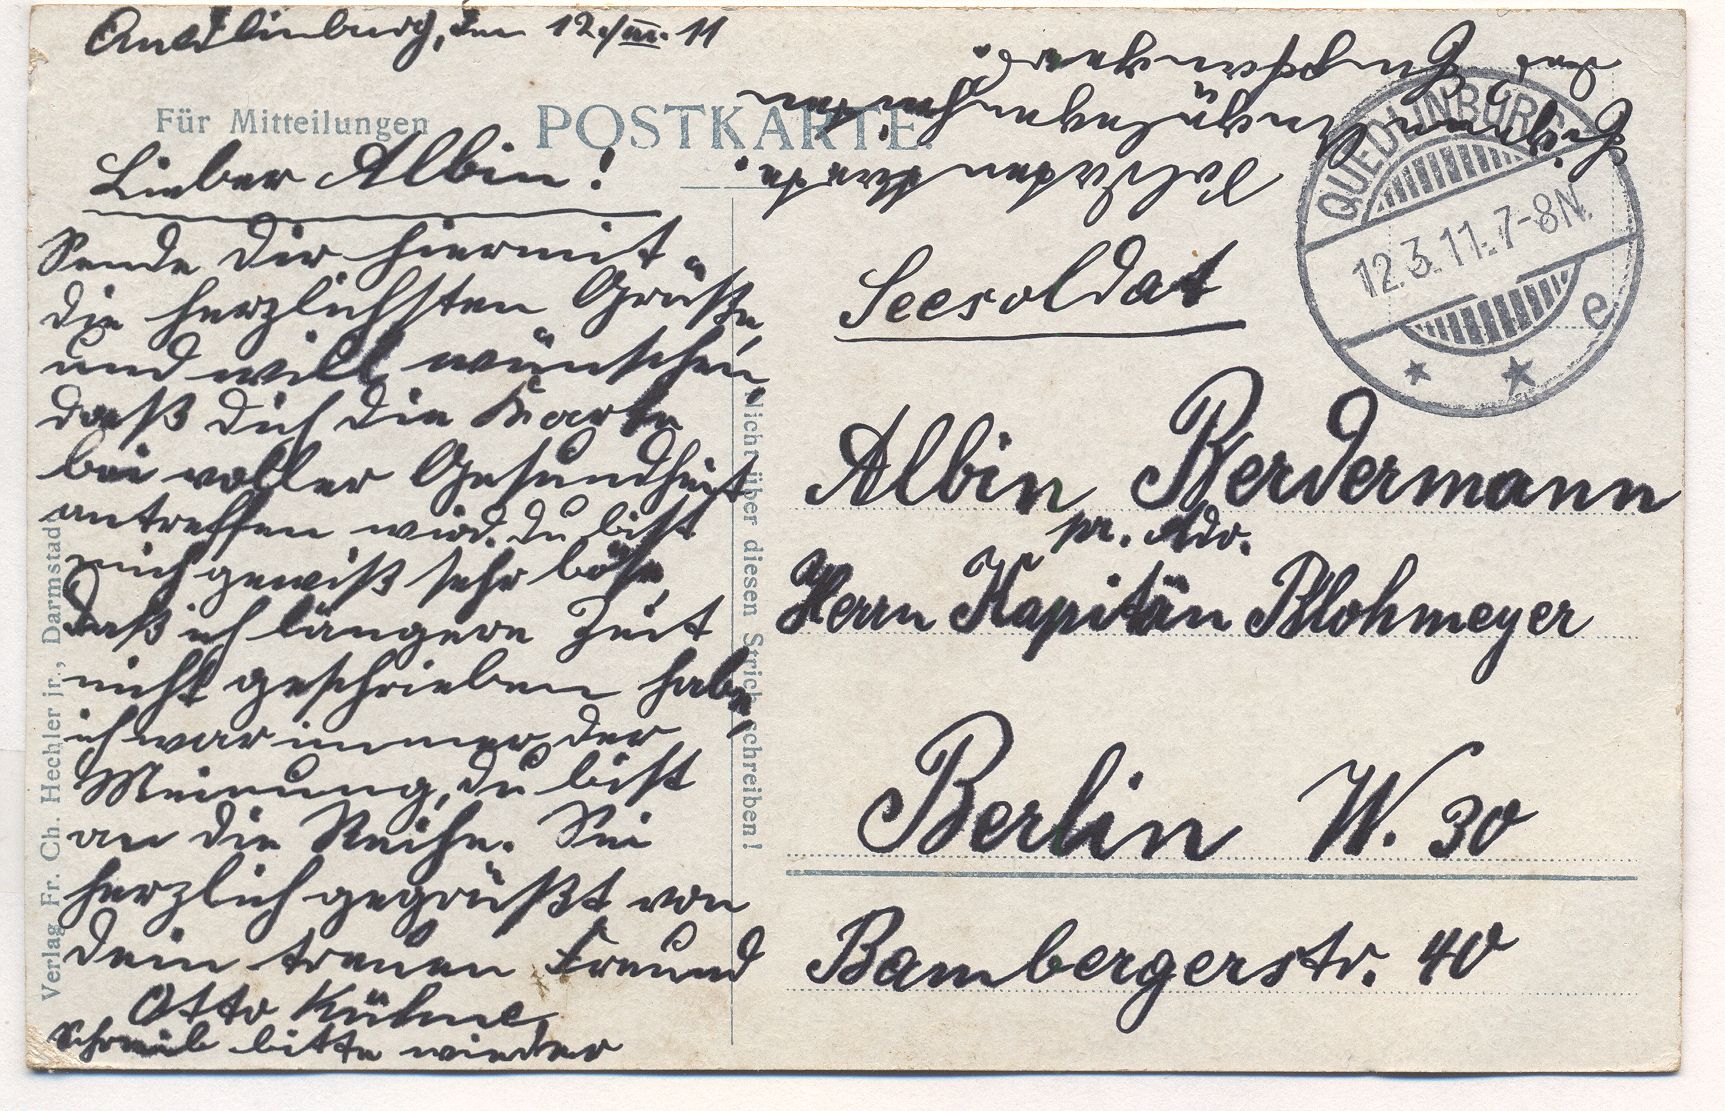 Quedlinburg, den 12./III. 11
Für Mitteilungen
POSTKARTE.
Lieber Albin!
Sende Dir hiermit
die herzlichsten Grüße,
und will wünschen,
daß dich die Karte
bei voller Gesundheit
antreffen wird. Du bist
mich gewiß sehr böse,
daß ich längere Zeit
nicht geschrieben habe,
ich war immer der
Meinung, du bist
an die Reihe. Sei
herzlich gegrüßt von
dein treuen Freund
Otto Kühne.
Schreib bitte wieder
Verlag Fr. Ch. Hechler jr., Darmstadt
Nicht über diesen Strich schreiben!
QUEDLINBURG
12.3.11.7-8N.
e
Seesoldat
Albin Berdermann
pr. Adr.
Herrn Kapitän Blohmeyer
Berlin W. 30
Bambergerstr. 40